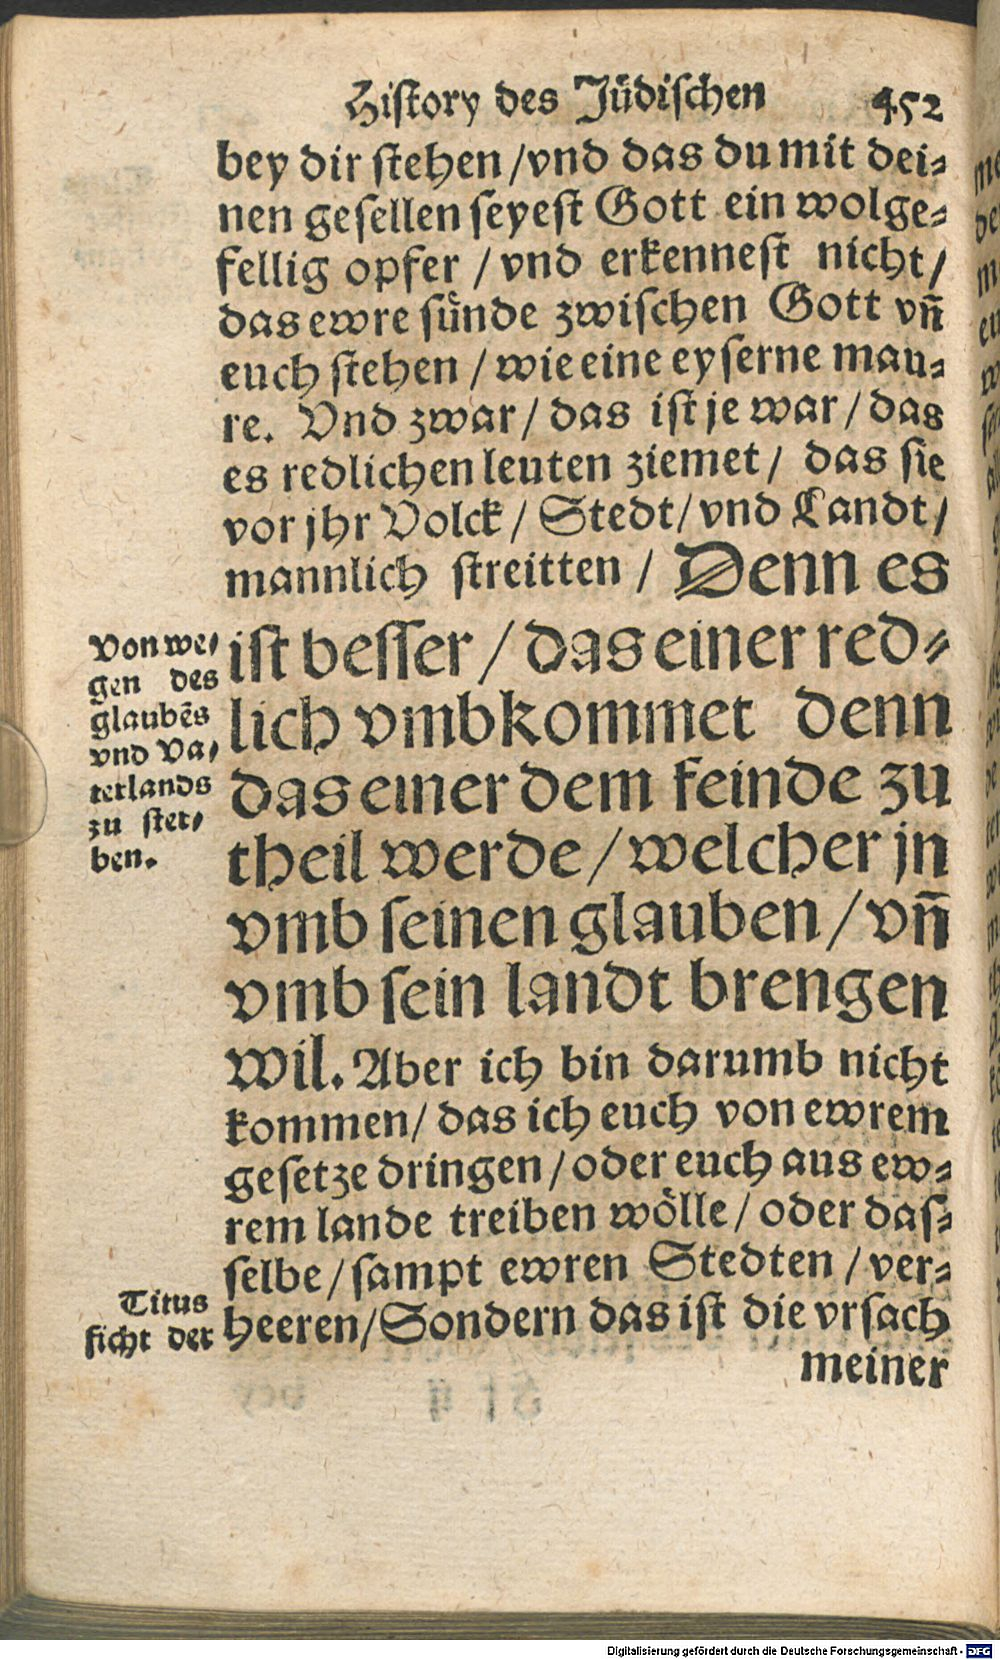 History des Jüdischen 452
bey dir stehen / vnd das du mit dei-
nen gesellen seyest Gott ein wolge-
fellig opfer / vnd erkennest nicht /
das ewre sünde zwischen Gott vñ
euch stehen / wie eine eyserne mau-
re. Vnd zwar / das ist je war / das
es redlichen leuten ziemet / das sie
vor jhr Volck / Stedt / vnd Landt /
mannlich streitten / Denn es
ist besser / das einer red-
lich vmbkommet denn
das einer dem feinde zu
theil werde / welcher jn
vmb seinen glauben / vñ
vmb sein landt brengen
wil. Aber ich bin darumb nicht
kommen / das ich euch von ewrem
gesetze dringen / oder euch aus ew-
rem lande treiben wölle / oder das-
selbe / sampt ewren Stedten / ver-
heeren / Sondern das ist die vrsach
meiner
Von we-
gen des
glaubēs
vnd Va-
terlands
zu ster-
ben.
Titus
ficht der
Digitalisierung gefördert durch die Deutsche Forschungsgemeinschaft - DFG